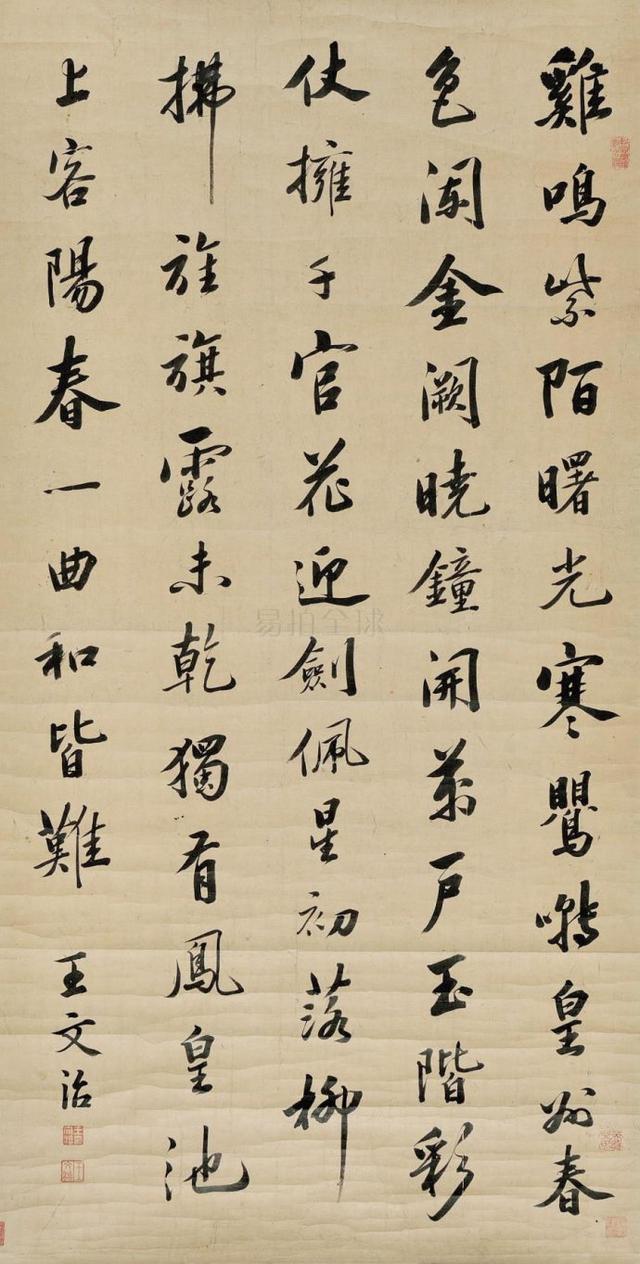 雞鳴紫陌曙光寒鸎囀皇州春
色闌金闕曉鐘開萬戶玉階彩
仗擁千官花迎劍佩星初落柳
拂旌旗露未乾獨有鳳皇池
上客陽春一曲和皆難
王文治
易拍全球